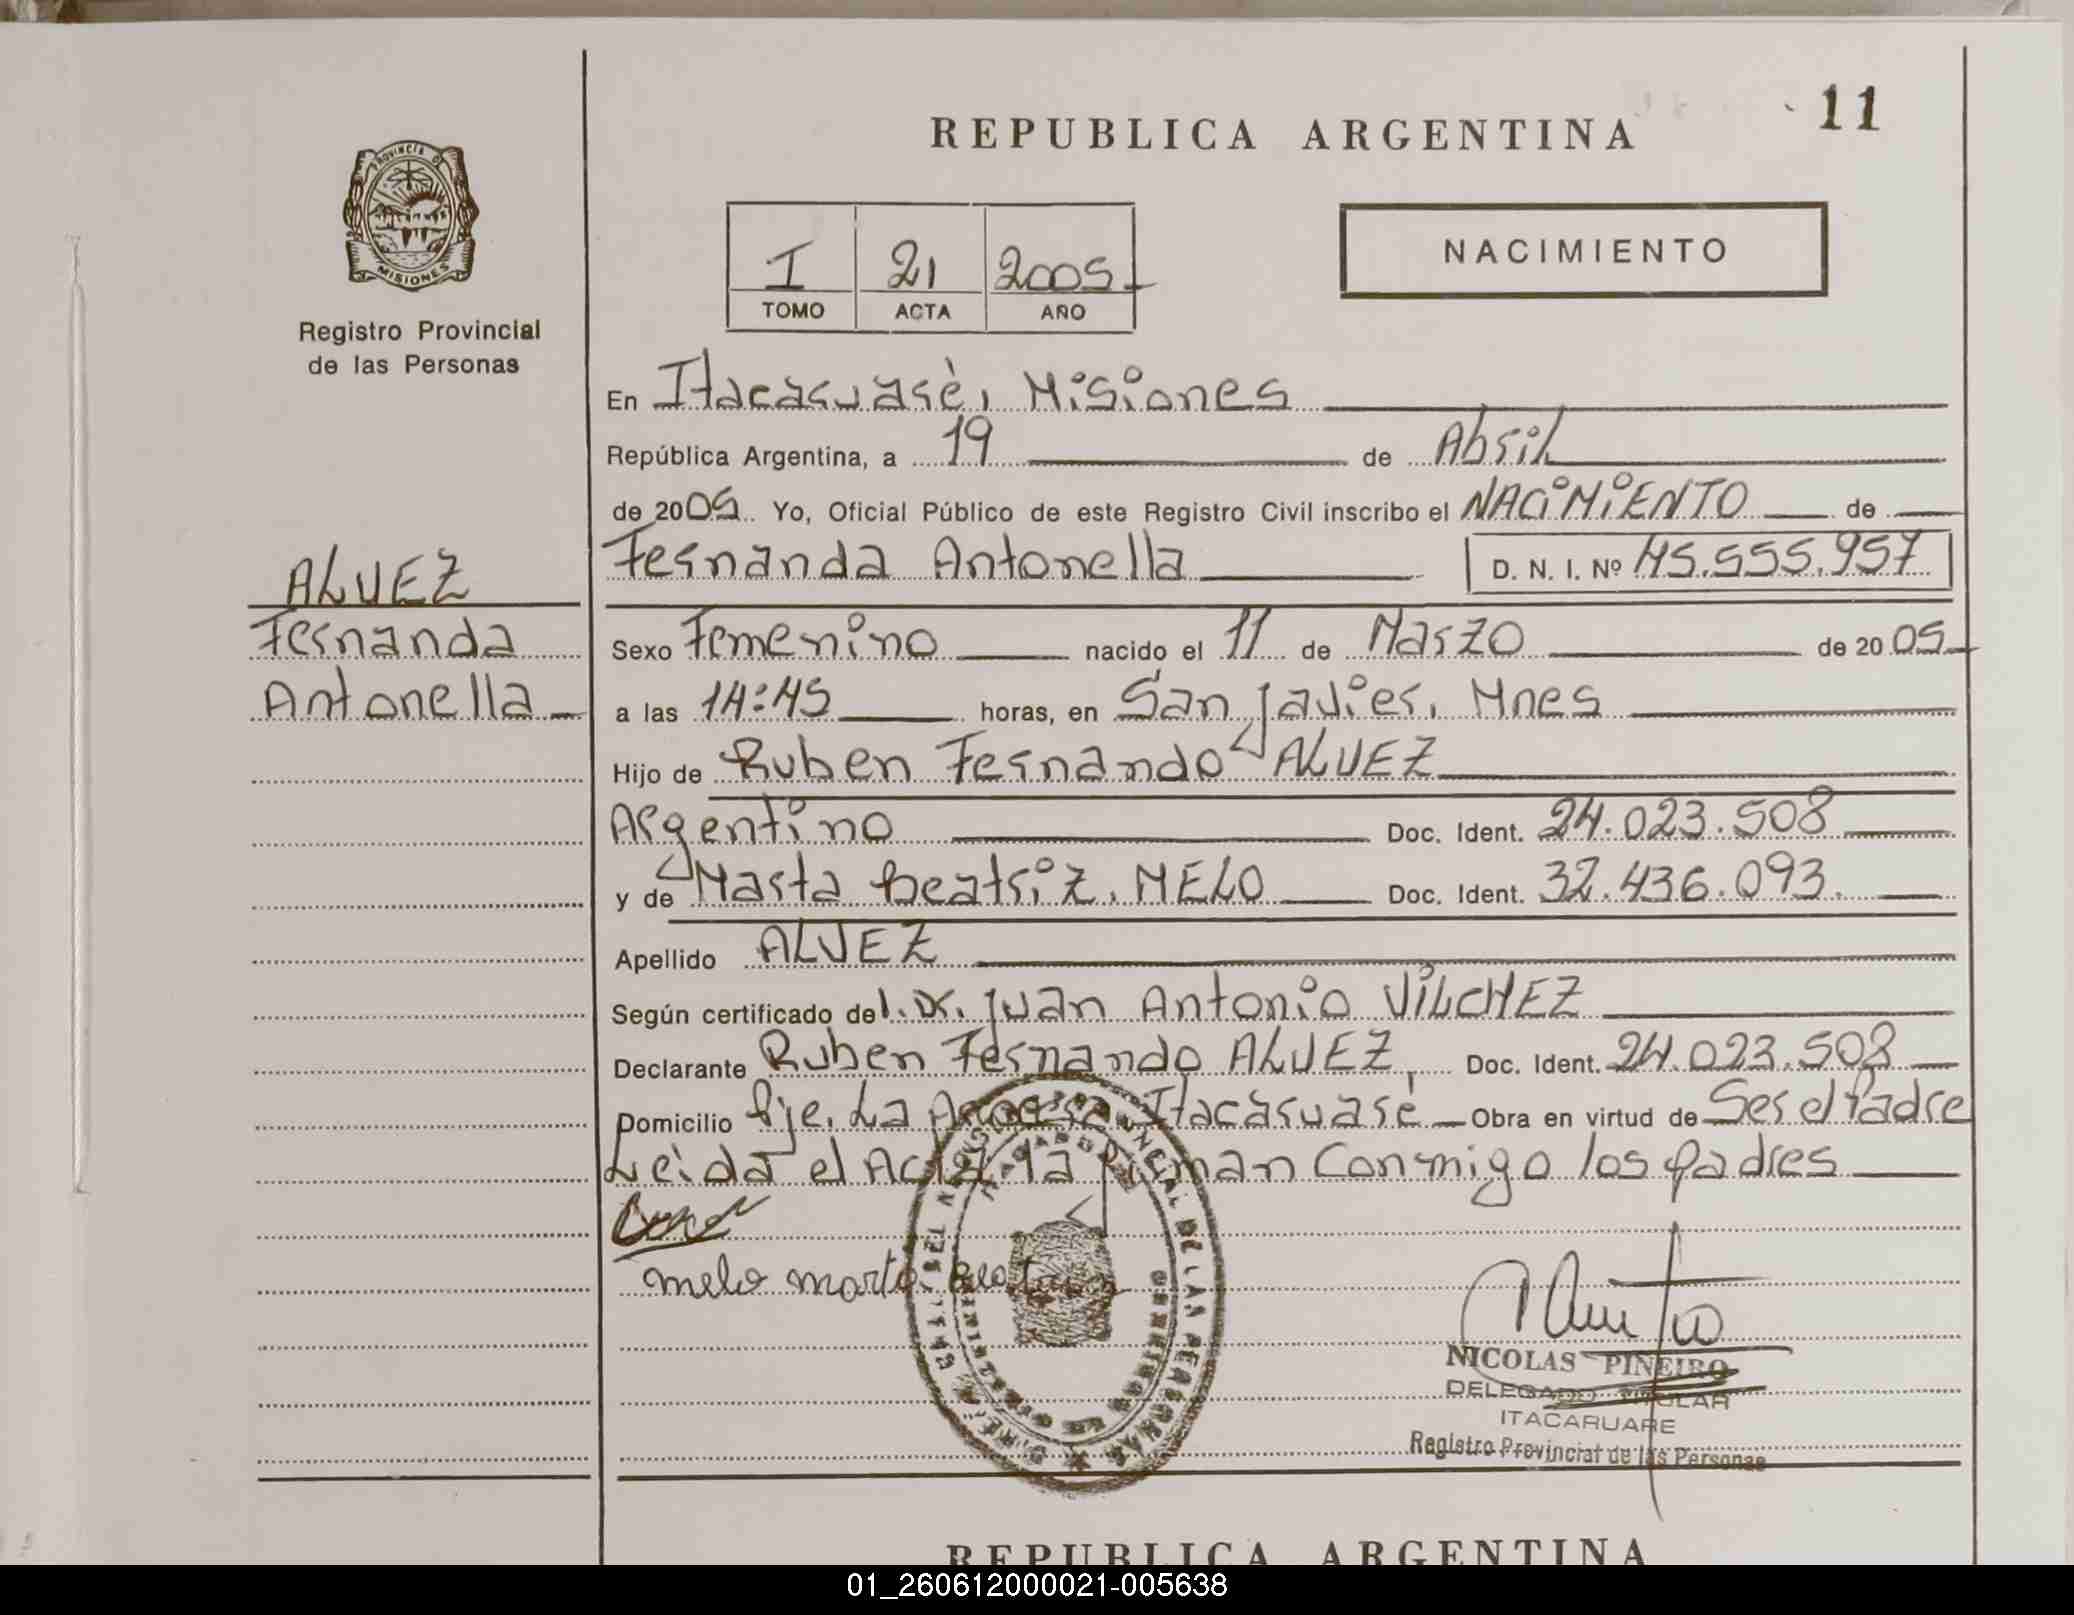 REPUBLICA ARGENTINA
11
PROVINCIA DE
MISIONES
Registro Provincial
de las Personas
NACIMIENTO
I 21 2005
TOMO ACTA AÑO
En Itacaruaré, Misiones
República Argentina, a 19 de Abril
de 2005 Yo, Oficial Público de este Registro Civil inscribo el NACIMIENTO de
Fernanda Antonella D. N. I. Nº 45.555.957
ALVEZ
Fernanda
Antonella
Sexo Femenino nacido el 11 de Marzo de 2005
a las 14:45 horas, en San Javier, Mnes
Hijo de Ruben Fernando ALVEZ
Argentino Doc. Ident. 24.023.508
y de Marta Beatriz, MELO Doc. Ident. 32.436.093.
Apellido ALVEZ
Según certificado del. Dr. Juan Antonio VILCHEZ
Declarante Ruben Fernando ALVEZ Doc. Ident. 24.023.508
Domicilio Pje. La Itacaruaré Obra en virtud de Ser el Padre
Leida el Acta la firman Conmigo los padres
melo marta Beatriz
NICOLAS PIÑEIRO
DELEGADO TITULAR
ITACARUARE
Registro Provincial de las Personas
REPUBLICA ARGENTINA
01_260612000021-005638